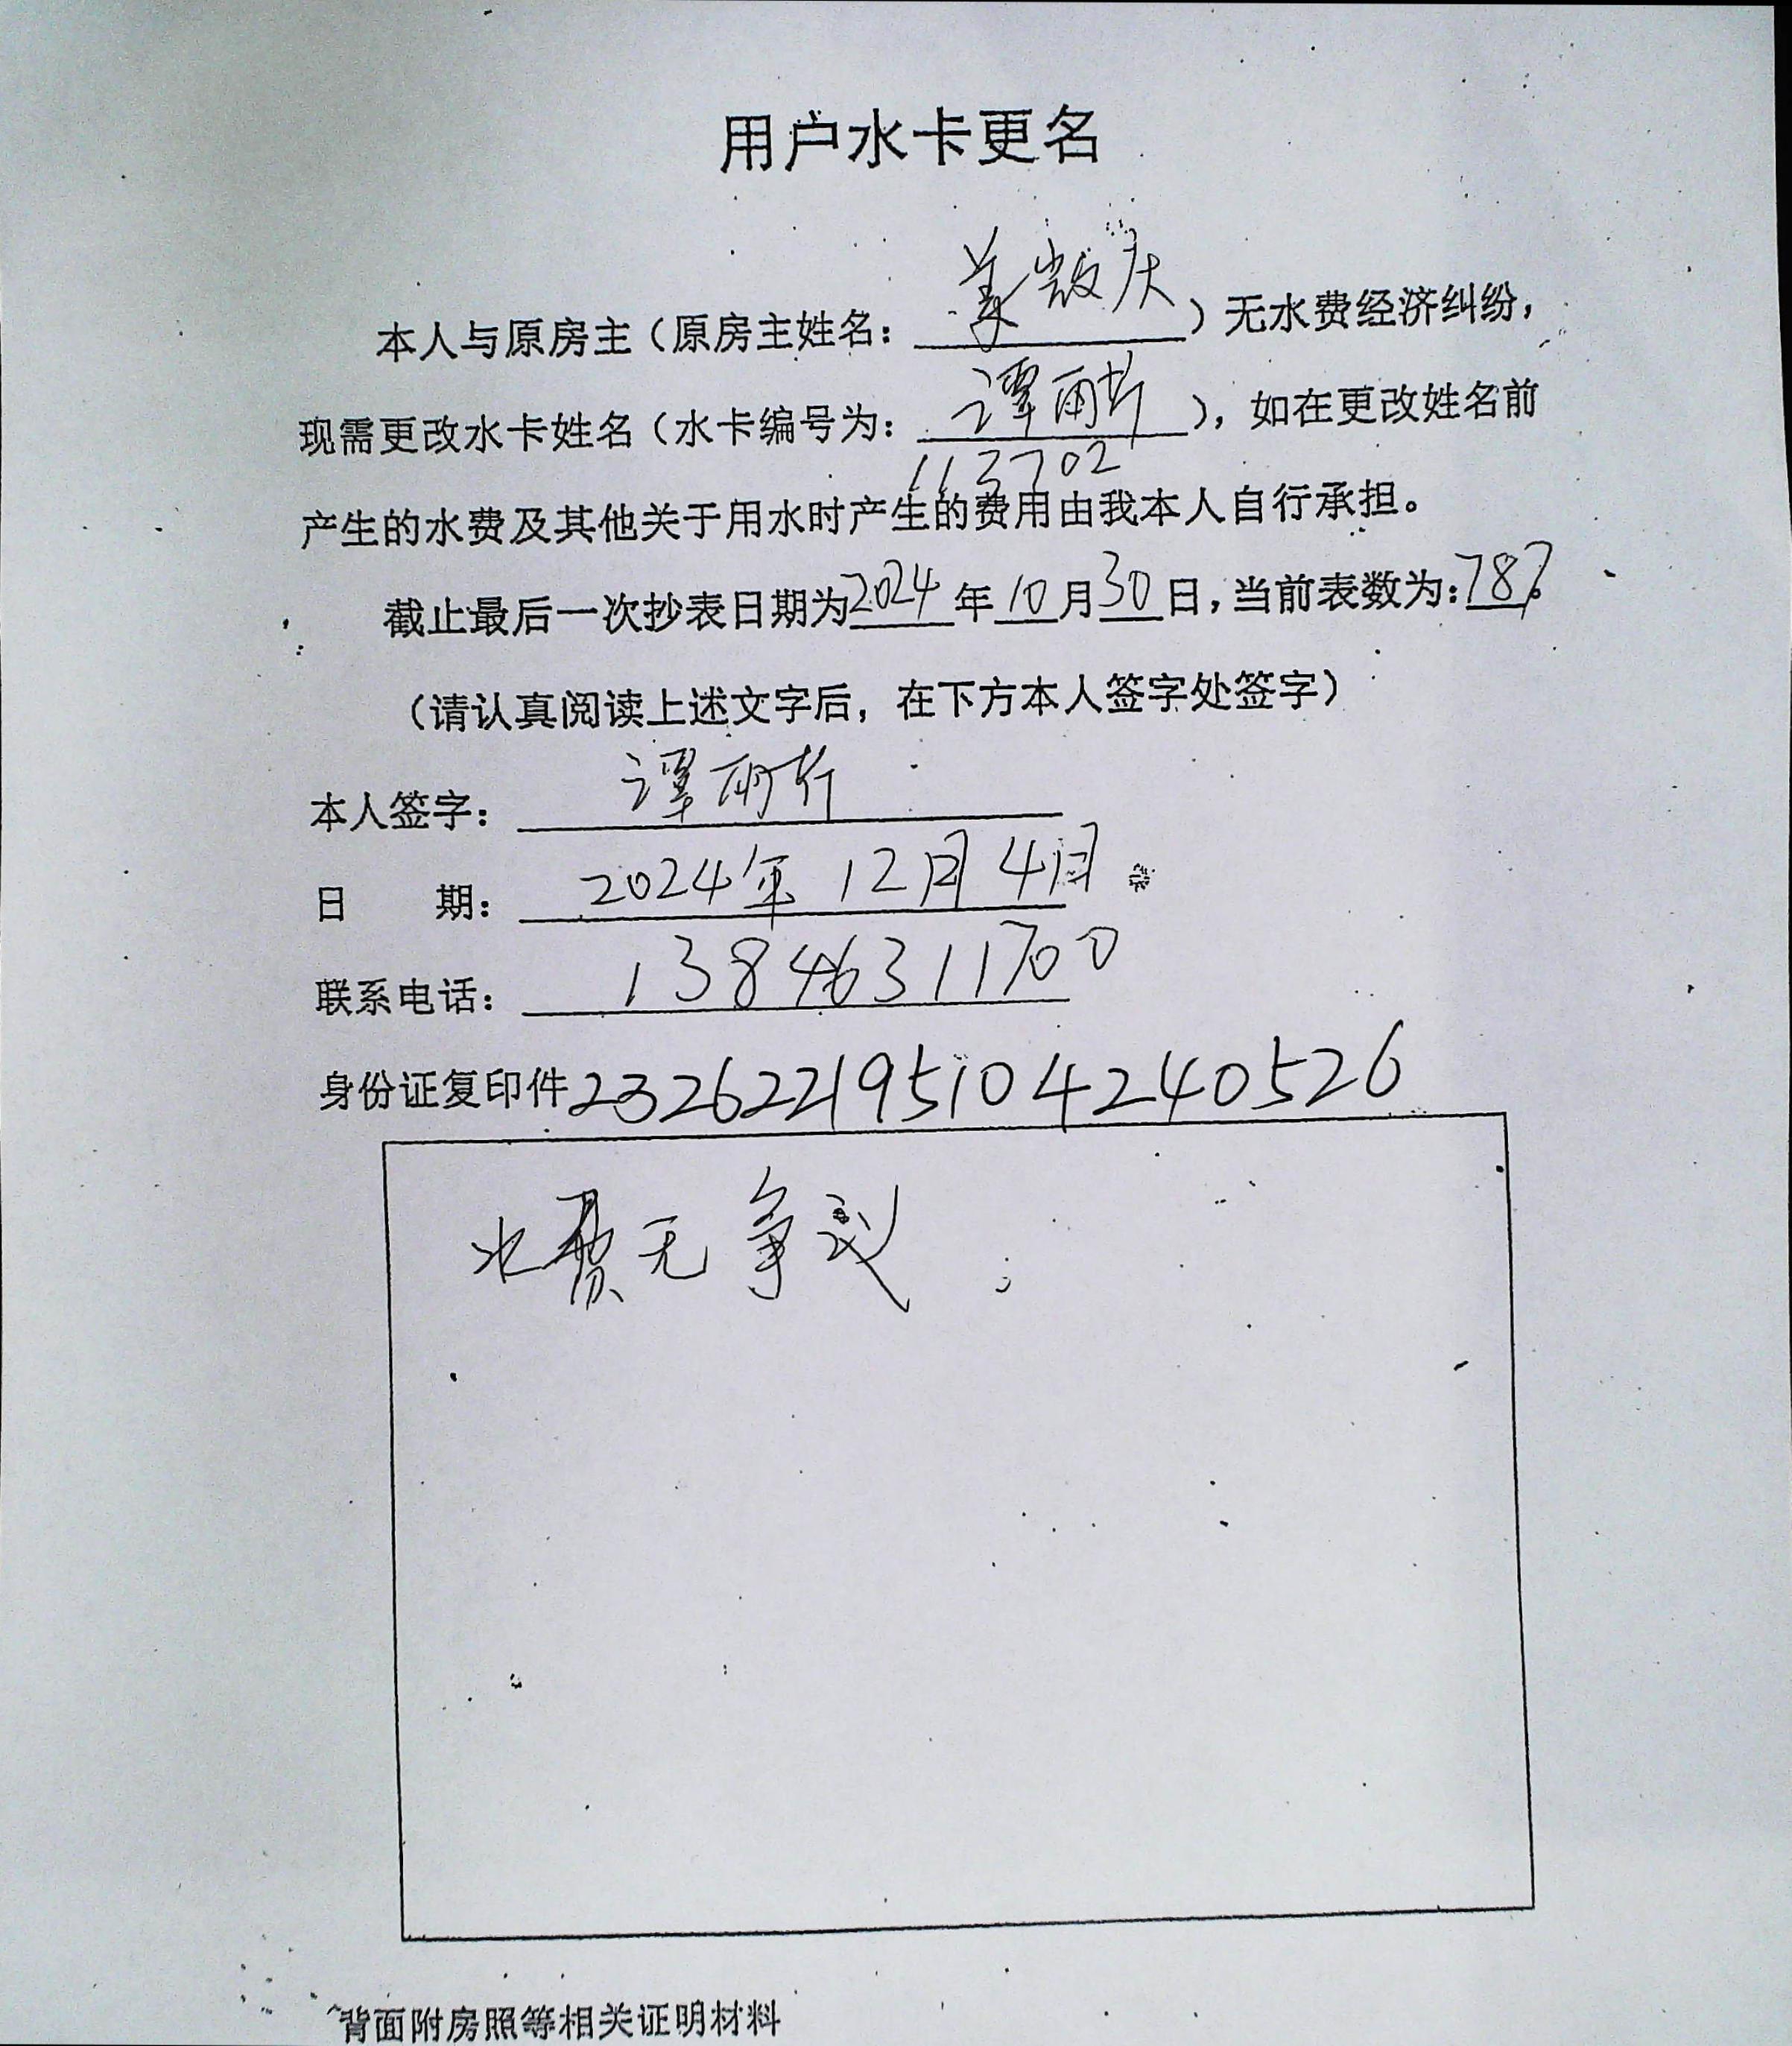 用户水卡更名
本人与原房主（原房主姓名：姜殿庆）无水费经济纠纷，
现需更改水卡姓名（水卡编号为：谭雨竹），如在更改姓名前
113702
产生的水费及其他关于用水时产生的费用由我本人自行承担。
截止最后一次抄表日期为2024年10月30日，当前表数为：787。
（请认真阅读上述文字后，在下方本人签字处签字）
本人签字：谭雨竹
日　　期：2024年12月4日
联系电话：13846311700
身份证复印件232622195104240526
水费无争议
背面附房照等相关证明材料